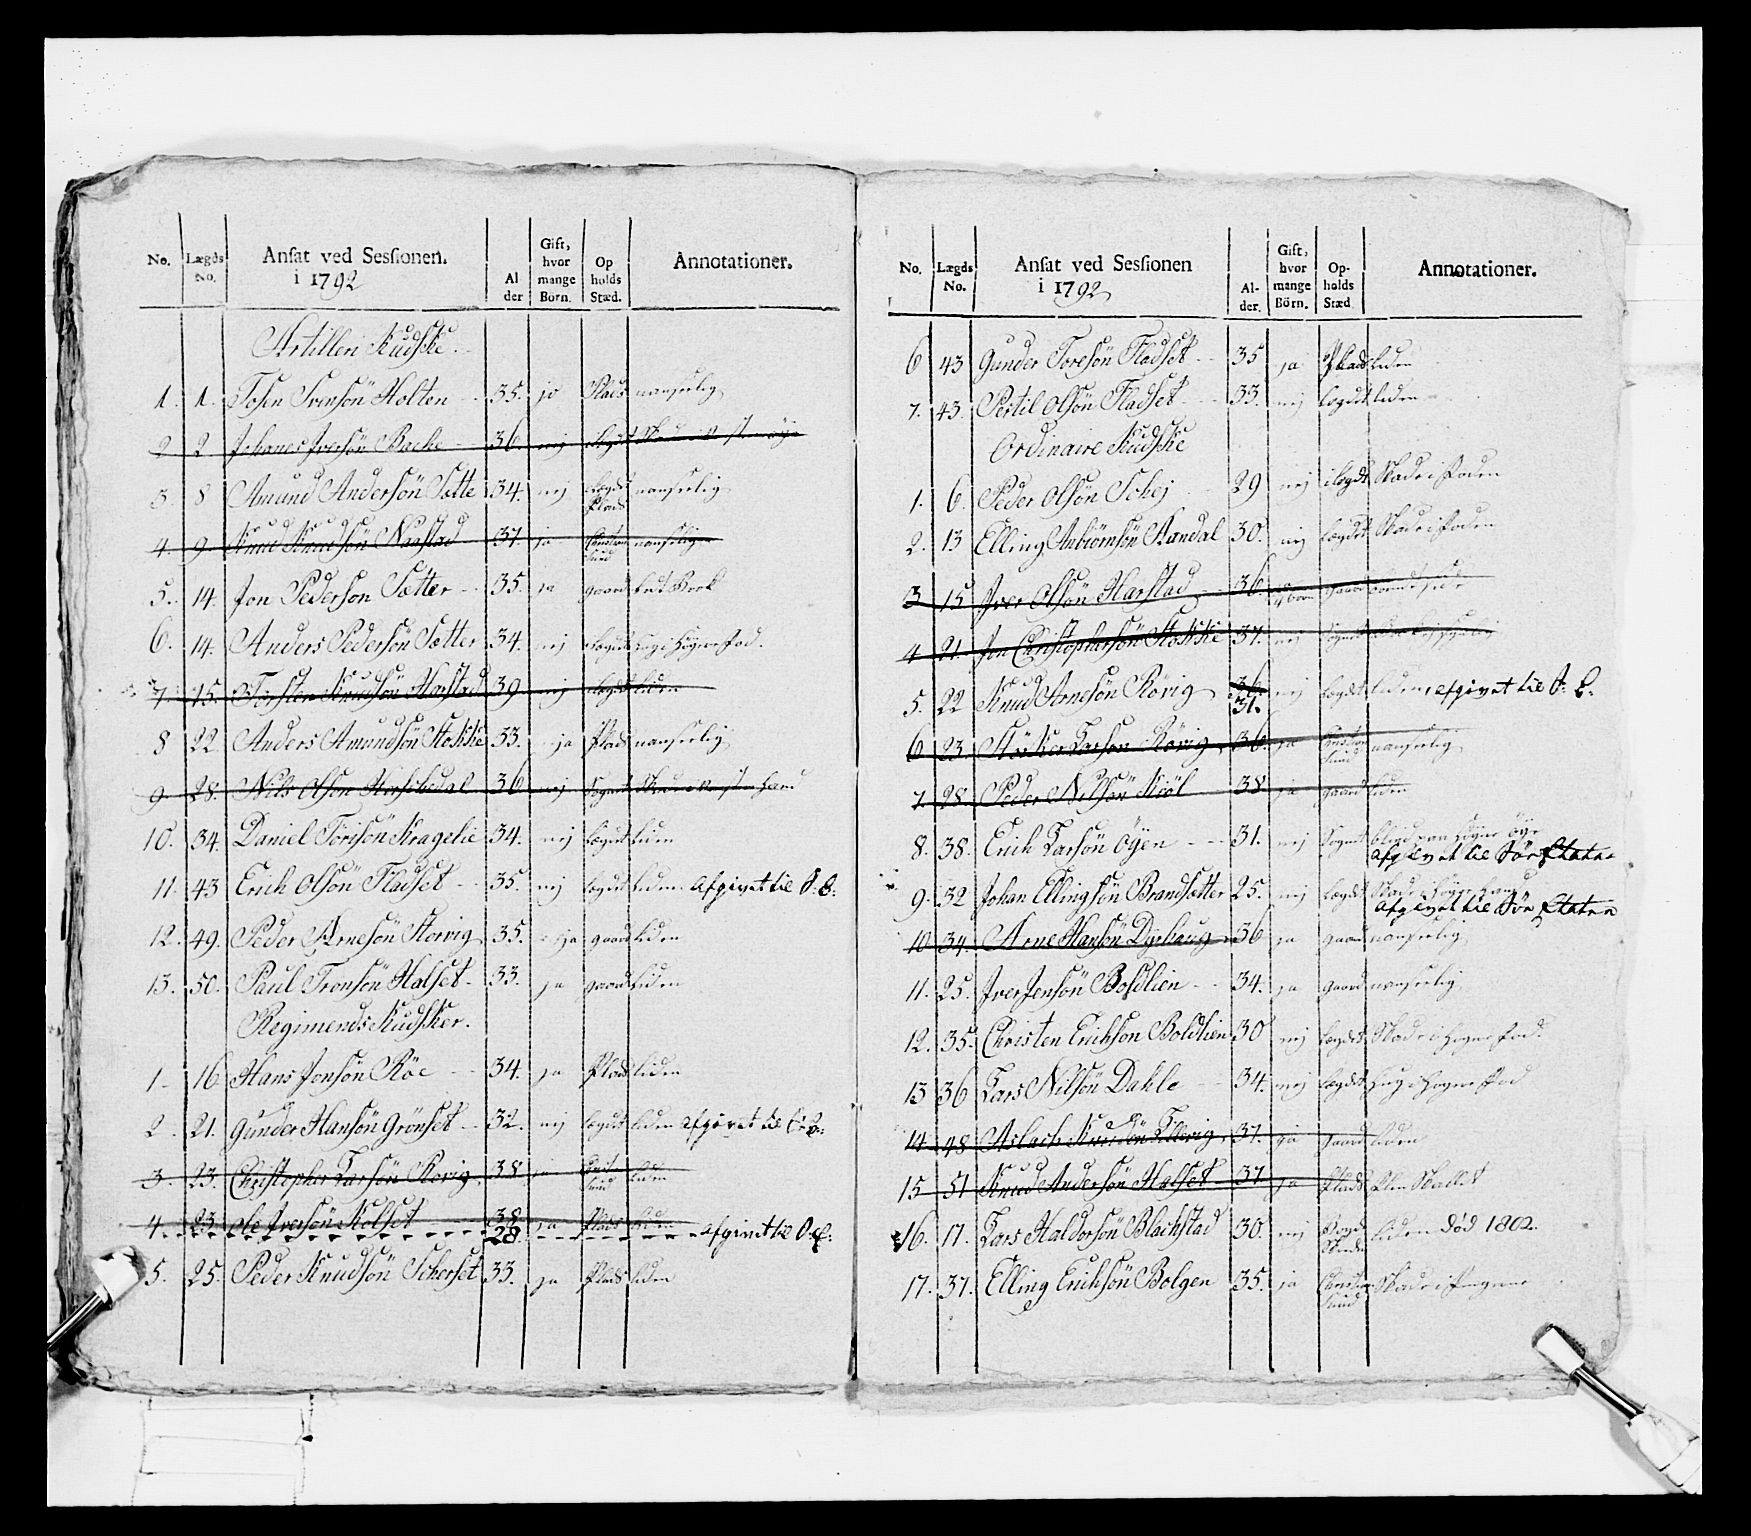 No. Lægds No. Ansat ved Sessionen. i 1792 Al der Gift, hvor mange Börn. Op holds Stæd. Annotationer.
Artilleri Kudske.
1. 1. Tosten Svensön Holten 35. ja Plads uanseelig
2 2 Johanes Iversön Backe 36. nej
3. 8 Amund Andersön Sætte 34. nej Lægdt Plads uanseelig
4. 9. Knud Knudsön Naastad 37. ja Christian Sund uanseelig
5. 14. Jon Pederson Sætter 35. ja gaard
6. 14. Anders Pedersön Sætter 34. nej Lægdt hug i högre Fod.
7. 15. Torsten Knudsön Harstad 39 nej Lægdt liden
8 22 Anders Amundsön Stokke 33. ja Plads uanseelig
9. 28. Nils Olson 36 nej
10. 34. Daniel Törisön Kragelie 34. nej Lægdt liden
11. 43 Erich Olsön Fladset 35. nej Lægdt liden Afgivet til S: E:
12. 49. Peder Arnesön Storvig 35. ja gaard liden
13. 50. Paul Tronsön Halset 33. ja gaard liden
Regiments Kudsker.
1 16 Hans Jonsön Röe 34. ja Plads liden
2 21. Gunder Hansön Grönset 32. nej Lægdt liden afgivet til
3. 23. Christopher Larsön Rörvig 38 ja Christ. Sund liden
4. 23. Ole Iversön Kolset 38 28. ja Plads liden afgivet til S: E:
5. 25. Peder Knudsön Scherset 33. ja Plads liden
No. Lægds No. Ansat ved Sessionen i 1792 Al- der. Gift, hvor mange Börn. Op- holds Stæd. Annotationer.
6 43 Gunder Toresön Fladset 35 ja Plads liden
7. 43. Pertil Olsön Fladset 33. nej Lægdt liden
Ordinaire Kudske
1. 6. Peder Olsön Schej 29 nej Lægdt Skade i Foden
2. 13 Elling Anbiörnsön Kandal 30. nej Lægdt Skade i Foden
3 15 Iver Olsön Harstad 36. Gaard
4 21. Jon Christophersön Stokke 37. nej
5. 22 Knud Arnesön Rörvig 36. 31. nej Lægdt liden, afgivet til S: E:
6 23. Störker Larson Rörvig 36. ja Christian Sund uanseelig
7. 28. Peder Nilsön Kiöl 38. ja gaard liden
8. 38. Erich Larsön Öyen 31. nej Blind paa högre Öye afgivet til Söe Etaten
9. 32 Johan Ellingsön Brandsætter 25. nej Lægdt Skade i högre haand Afgivet til Söe Etaten
10 34. Arne Hansön Dyrhaug 36 ja gaard uanseelig
11. 25. Iver Jensön Bosdlien 34. ja Gaard uanseelig
12. 35. Christen Erichson Boldlien 30 nej Lægdt Skade i högre Fod.
13 36 Lars Nilsön Dahle 34. nej Lægdt hug i högre Fod
14. 48 Aslach Knudsön Ellevig 37. ja gaard liden
15 51 Knud Andersön Halset 37 ja Plads
16. 17. Lars Haldorsön Blachstad 30. nej liden död 1802.
17. 37. Elling Erichsön Bolgen 35. ja Christian Sund Skade i Fingrene